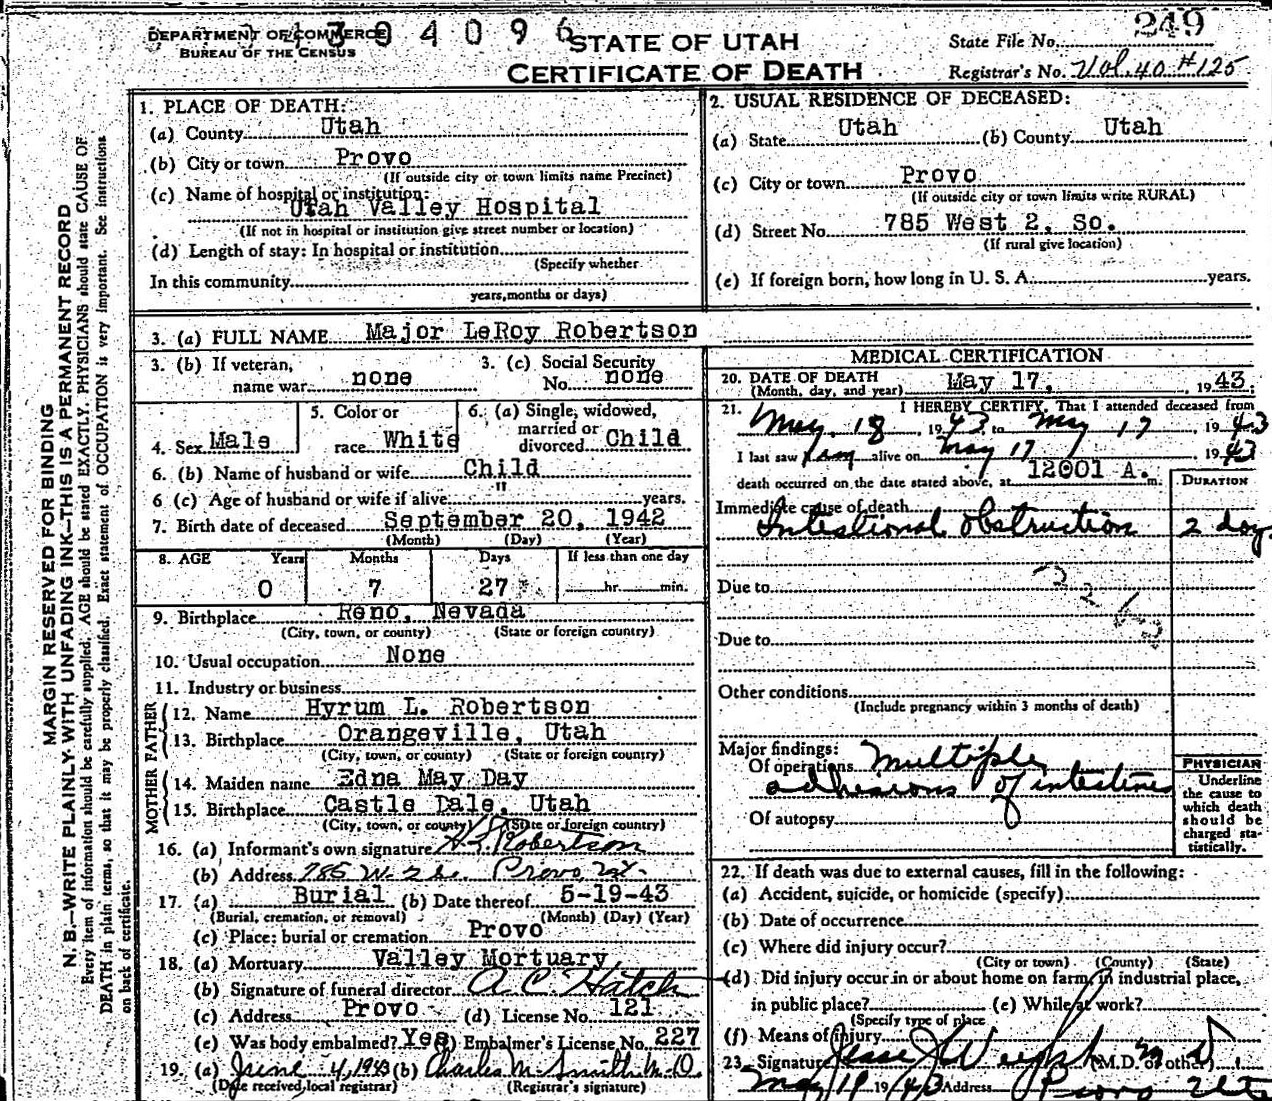 DEPARTMENT OF COMMERCE
BUREAU OF THE CENSUS
304096
STATE OF UTAH
CERTIFICATE OF DEATH
249
State File No.
Registrar's No. Vol. 40 #125
MARGIN RESERVED FOR BINDING
N. B.—WRITE PLAINLY WITH UNFADING INK—THIS IS A PERMANENT RECORD
Every item of information should be carefully supplied. AGE should be stated EXACTLY. PHYSICIANS should state CAUSE OF
DEATH in plain terms, so that it may be properly classified. Exact statement of OCCUPATION is very important. See instructions
on back of certificate.
1. PLACE OF DEATH:
(a) County Utah
(b) City or town Provo
(If outside city or town limits name Precinct)
(c) Name of hospital or institution:
Utah Valley Hospital
(If not in hospital or institution give street number or location)
(d) Length of stay: In hospital or institution
(Specify whether
In this community
years, months or days)
2. USUAL RESIDENCE OF DECEASED:
(a) State Utah (b) County Utah
(c) City or town Provo
(If outside city or town limits write RURAL)
(d) Street No. 785 West 2, So.
(If rural give location)
(e) If foreign born, how long in U. S. A. years.
3. (a) FULL NAME Major LeRoy Robertson
3. (b) If veteran, name war none
3. (c) Social Security No. none
4. Sex Male
5. Color or race White
6. (a) Single, widowed, married or divorced Child
6. (b) Name of husband or wife Child
6 (c) Age of husband or wife if alive " years.
7. Birth date of deceased September 20, 1942
(Month) (Day) (Year)
8. AGE Years Months Days If less than one day
0 7 27 hr. min.
9. Birthplace Reno, Nevada
(City, town, or county) (State or foreign country)
10. Usual occupation None
11. Industry or business
FATHER
12. Name Hyrum L. Robertson
13. Birthplace Orangeville, Utah
(City, town, or county) (State or foreign country)
MOTHER
14. Maiden name Edna May Day
15. Birthplace Castle Dale, Utah
(City, town, or county) (State or foreign country)
16. (a) Informant's own signature H L Robertson
(b) Address 785 W. 2 So. Provo Ut.
17. (a) Burial (b) Date thereof 5-19-43
(Burial, cremation, or removal) (Month) (Day) (Year)
(c) Place: burial or cremation Provo
18. (a) Mortuary Valley Mortuary
(b) Signature of funeral director A. C. Hatch
(c) Address Provo (d) License No. 121
(e) Was body embalmed? Yes (f) Embalmer's License No. 227
19. (a) June 4, 1943 (b) Charles M. Smith M.D.
(Date received local registrar) (Registrar's signature)
MEDICAL CERTIFICATION
20. DATE OF DEATH
(Month, day, and year) May 17, 1943
21. I HEREBY CERTIFY, That I attended deceased from
May 18, 1943, to May 17, 1943
I last saw him alive on May 17 1943
death occurred on the date stated above, at 12001 A. m.
DURATION
Immediate cause of death
Intestional obstruction 2 days
Due to
Due to
Other conditions
(Include pregnancy within 3 months of death)
Major findings:
Of operations Multiple
adhesions of intestines
Of autopsy
PHYSICIAN
Underline
the cause to
which death
should be
charged sta-
tistically.
22. If death was due to external causes, fill in the following:
(a) Accident, suicide, or homicide (specify)
(b) Date of occurrence
(c) Where did injury occur?
(City or town) (County) (State)
(d) Did injury occur in or about home on farm, in industrial place,
in public place? (e) While at work?
(Specify type of place
(f) Means of injury
23. Signature Jesse J Weight M.D. (M.D. or other)
May 19 1943 Address Provo Utah